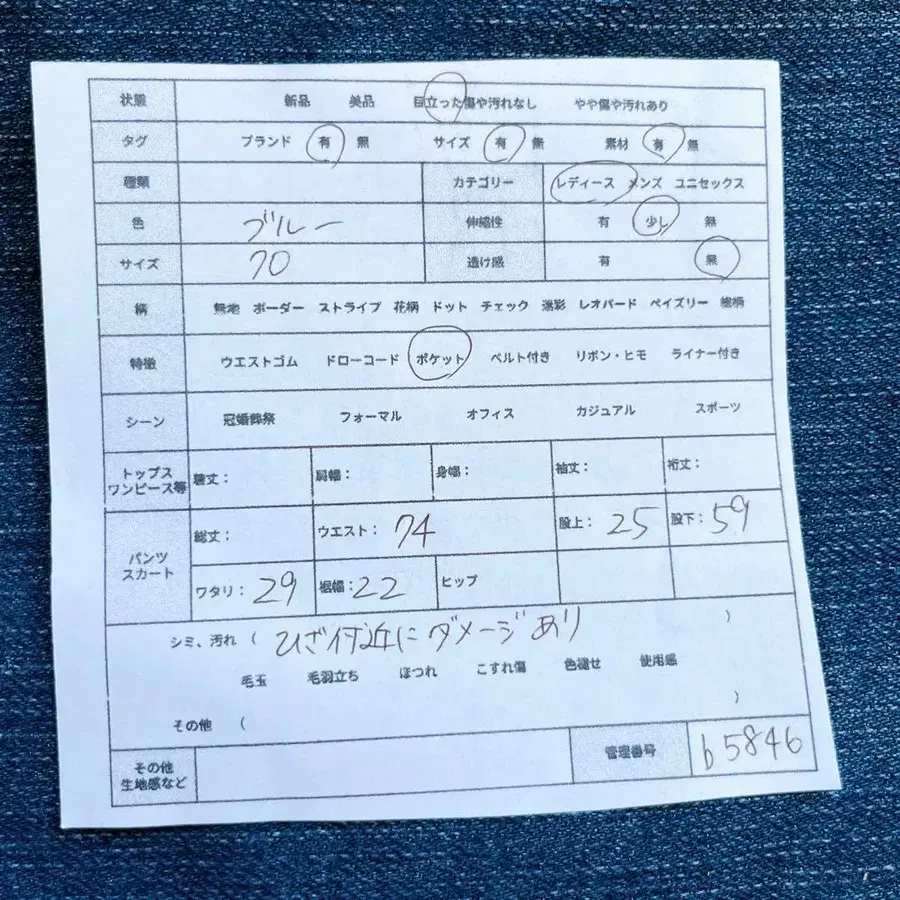 状態 新品 美品 目立った傷や汚れなし やや傷や汚れあり
タグ ブランド 有 無 サイズ 有 無 素材 有 無
種類 カテゴリー レディース メンズ ユニセックス
色 ブルー 伸縮性 有 少し 無
サイズ 70 透け感 有 無
柄 無地 ボーダー ストライプ 花柄 ドット チェック 迷彩 レオパード ペイズリー 総柄
特徴 ウエストゴム ドローコード ポケット ベルト付き リボン・ヒモ ライナー付き
シーン 冠婚葬祭 フォーマル オフィス カジュアル スポーツ
トップス
ワンピース等 着丈: 肩幅: 身幅: 袖丈: 裄丈:
パンツ
スカート 総丈: ウエスト: 74 股上: 25 股下: 59
ワタリ: 29 裾幅: 22 ヒップ
シミ、汚れ ( ひざ付近にダメージあり )
毛玉 毛羽立ち ほつれ こすれ傷 色褪せ 使用感
その他 ( )
その他
生地感など 管理番号 b5846